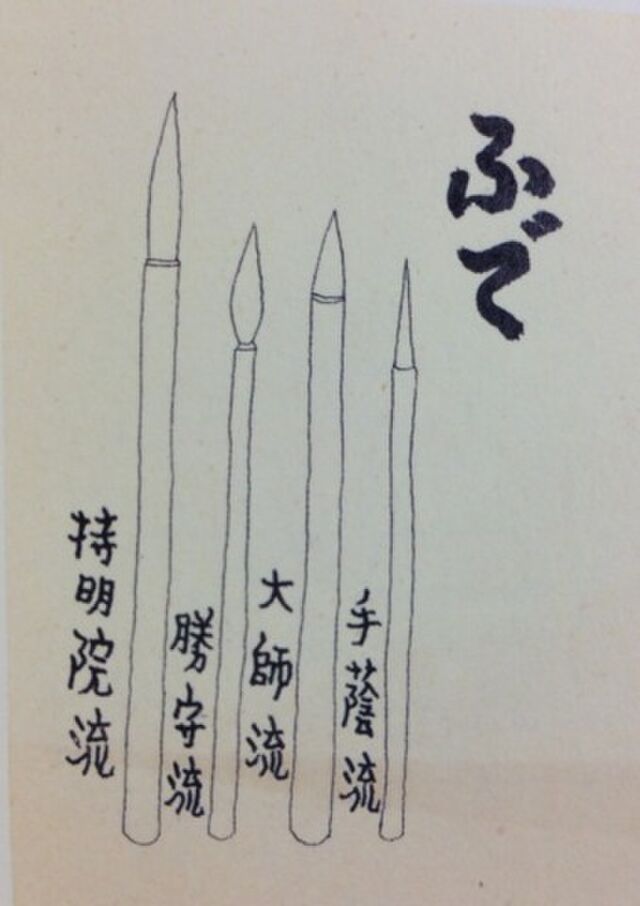 ふで
手蔭流
大師流
勝守流
持明院流